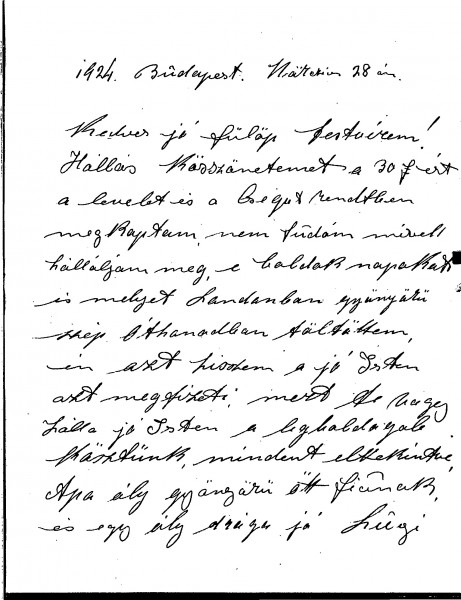 1924. Budapest. Március 28 án.
Kedves jó fülöp testvérem!
Hállás Köszzönetemet a 30 f ért
a levelet és a Cségut rendtben
megkaptam, nem túdóm mivell
hálláljam meg, e boldok napokatt
is melyet Londonban gyönyörü
szép Óthonodban töltöttem,
én azt hiszem a jó Isten
azt megfizeti, mert te nagy
hálla jó Isten a legboldogabb
Köztünk, mindent eltekintve,
Apa ály gyönyörü ött fiúnak,
és egy ály drága jó